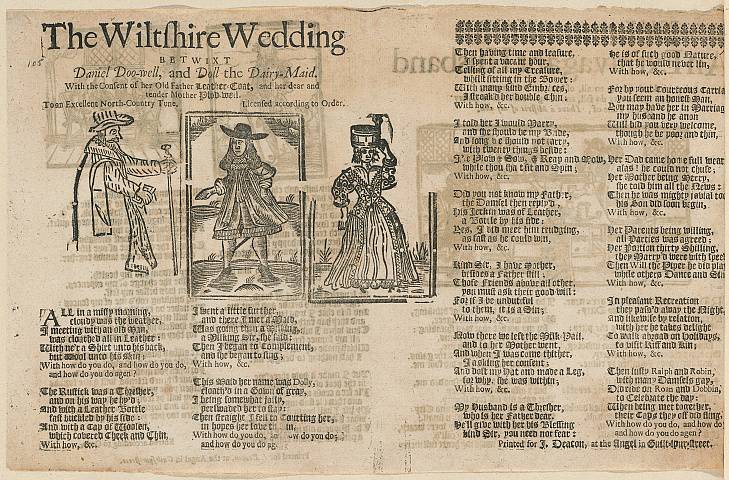 The Wiltshire Wedding
BETWIXT
Daniel Doo-well, and Doll the Dairy-Maid.
With the Consent of her Old Father Leather-Coat, and her dear and
tender Mother Plod-well.
To an Excellent North-Country Tune. Licensed according to Order.
105
ALL in a misty morning,
cloudy was the weather,
I meeting with an old Man,
was cloathed all in Leather:
With ne'r a Shirt unto his back,
but Wool unto his skin;
With how do you do, and how do you do,
and how do you do agen?
The Rustick was a Thresher,
and on his way he hy'd,
And with a Leather Bottle
fast buckled by his side:
And with a Cap of Woolen,
which covered Cheek and Chin,
With how, &c.
I went a little further,
and there I met a Maid,
Was going then a Milking,
a Milking Sir, she said:
Then I began to Complement,
and she began to sing;
With how, &c.
This Maid her name was Dolly,
cloath'd in a Gown of gray,
I being somewhat jolly,
perswaded her to stay:
Then straight I fell to Courting her,
in hopes her love to win,
With how do you do, and how do you do;
and how do you do agen?
Then having time and leasure,
I spent a vacant hour,
Telling of all my Treasure,
whilst sitting in the Bower:
With many kind Embraces,
I streak'd her double Chin:
With how, &c.
I told her I would Marry,
and she should be my Bride,
And long we should not tarry,
with twenty things beside:
I'll Plow & Sow, & Reap and Mow,
while thou shalt sit and Spin;
With how, &c.
Did you not know my Father,
the Damsel then reply'd,
His Jerkin was of Leather,
a Bottle by his side:
Yes, I did meet him trudging,
as fast as he could win,
With how, &c.
Kind Sir, I have a Mother,
besides a Father still:
Those Friends above all other,
you must ask their good will:
For if I be undutiful
to them, it is a Sin;
With how, &c.
Now there we left the Milk-Pail,
and to her Mother went,
And when I was come thither,
I asking her consent:
And doft my Hat and made a Leg,
for why, she was within;
With how, &c.
My Husband is a Thresher,
who is her Father dear,
He'll give with her his Blessing
kind Sir, you need not fear:
He is of such good Nature,
that he would never lin,
With how, &c.
For by your Courteous Carriage
you seem an honest Man,
You may have her in Marriage,
my husband he anon
Will bid you very welcome,
though he be poor and thin,
With how, &c.
Her Dad came home full weary
alas! he could not chuse;
Her Mother being Merry,
she told him all the News:
Then he was mighty jovial too
his Son did soon begin,
With how, &c.
Her Parents being willing,
all Parties was agreed;
Her Portion thirty Shilling,
they Marry'd were with speed
Then Will the Piper he did play
while others Dance and Sing
With how, &c.
In pleasant Recreation
they pass'd away the Night,
And likewise by relation,
with her he takes delight
To walk abroad on Holidays,
to visit Kiff and Kin;
With how, &c.
Then lusty Ralph and Robin,
with many Damsels gay,
Did ride on Roan and Dobbin,
to Celebrate the day:
When being met together,
their Caps they off did fling,
With how do you do, and how do
and how do you do agen?
Printed for J. Deacon, at the Angel in Guiltspur-street.